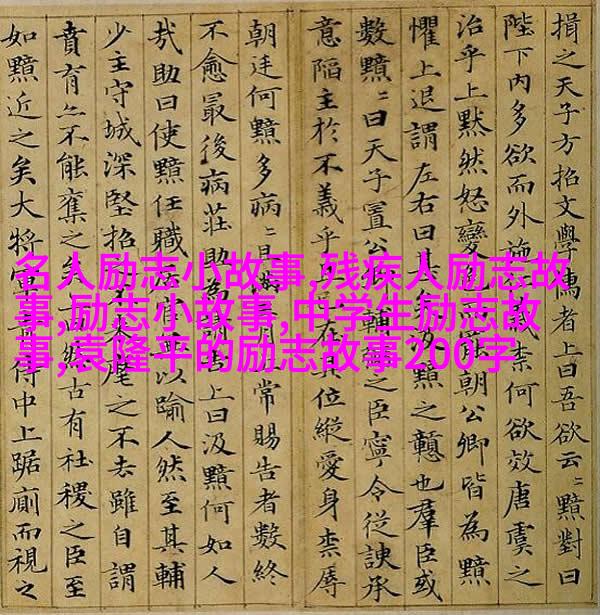 揖之天子方招文學儒者上曰吾欲云〻黯對曰
陛下内多欲而外施柰何欲效唐虞之
治乎上默然怒變色而罷朝公卿皆為黯
懼上退謂左右曰甚矣黯之戇也羣臣或
數黯〻曰天子置公卿輔之臣寧令從諛承
意陷主於不義乎在其位縱愛身柰辱
朝廷何黯多病〻且滿三月上常賜告者數終
不愈最後病莊助為請告上曰汲黯何如人
哉助曰使黯任職居官無以踰人然至其輔
少主守城深堅招之不來麾之不去雖自謂
賁育亦不能奪之矣上曰然古有社稷之臣至
如黯近之矣大將軍青侍中上踞廁而視之
名人励志小故事,残疾人励志故
事,励志小故事,中学生励志故
事,袁隆平的励志故事200字